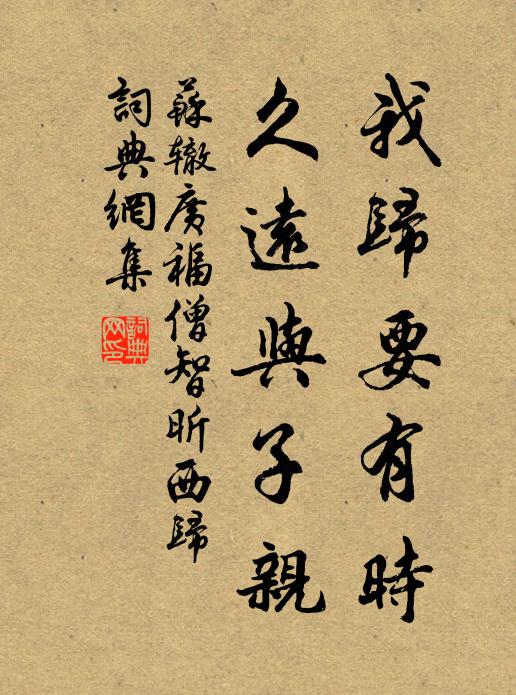 我歸要有時
久遠與子親
蘇辙廣福僧智昕西歸
詞典網集
詞典
网印